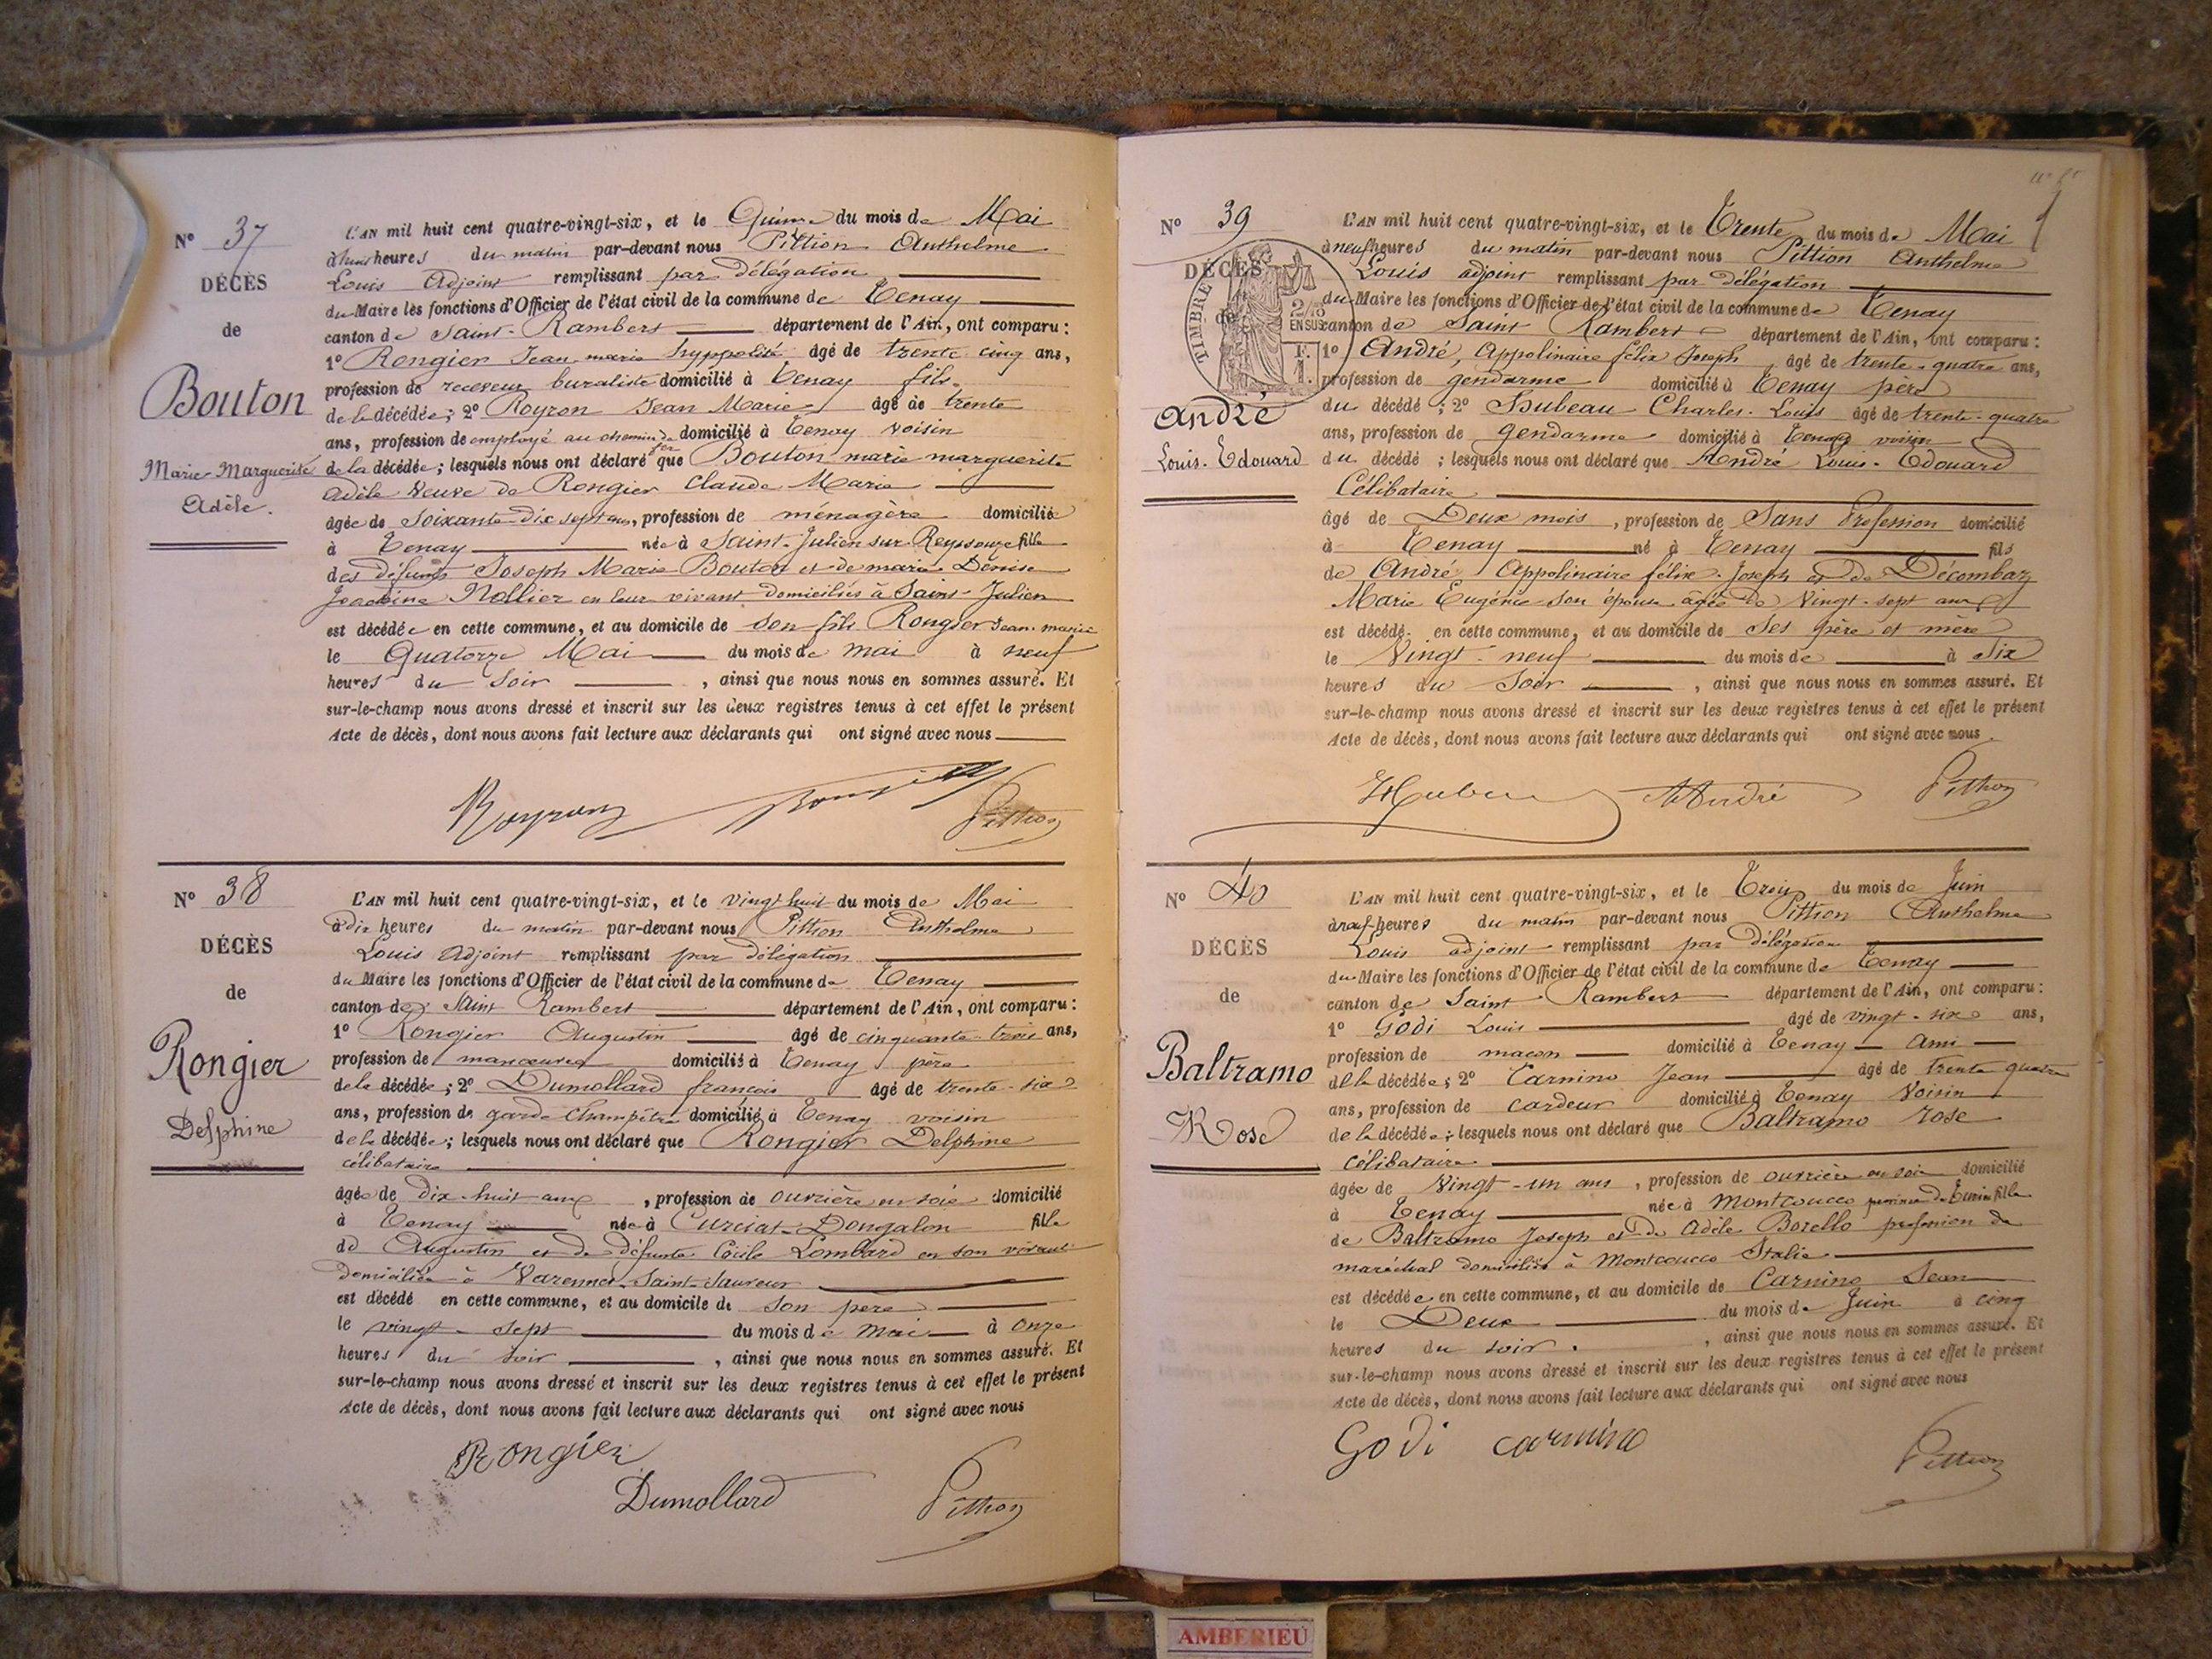 N° 37
DÉCÈS
de
Bouton
Marie Marguerite
Adèle.
L'AN mil huit cent quatre-vingt-six, et le Quinze du mois de Mai
à huit heures du matin par-devant nous Pittion Anthelme
Louis Adjoint remplissant par délégation
du Maire les fonctions d'Officier de l'état civil de la commune de Tenay
canton de Saint-Rambert département de l'Ain, ont comparu :
1° Rongier Jean marie hyppolite âgé de trente cinq ans,
profession de receveur buraliste domicilié à Tenay fils
de la décédée ; 2° Royron Jean Marie âgé de trente
ans, profession de employé au chemin de fer domicilié à Tenay voisin
de la décédée ; lesquels nous ont déclaré que Bouton marie marguerite
Adèle Veuve de Rongier Claude Marie
âgée de Soixante-dix sept ans, profession de ménagère domicilié
à Tenay née à Saint-Julien sur Reyssouze fille
des défunts Joseph Marie Bouton et de marie Denise
Nollier en leur vivant domiciliés à Saint-Julien
est décédée en cette commune, et au domicile de son fils Rongier Jean marie
le Quatorze Mai du mois de mai à neuf
heures du Soir , ainsi que nous nous en sommes assuré. Et
sur-le-champ nous avons dressé et inscrit sur les deux registres tenus à cet effet le présent
Acte de décès, dont nous avons fait lecture aux déclarants qui ont signé avec nous
Royron Rongier Pittion
N° 38
DÉCÈS
de
Rongier
Delphine
L'AN mil huit cent quatre-vingt-six, et le vingt huit du mois de Mai
à dix heures du matin par-devant nous Pittion Anthelme
Louis Adjoint remplissant par délégation
du Maire les fonctions d'Officier de l'état civil de la commune de Tenay
canton de Saint Rambert département de l'Ain, ont comparu :
1° Rongier Augustin âgé de cinquante-trois ans,
profession de manoeuvre domicilié à Tenay père
de la décédée ; 2° Dumollard françois âgé de trente-six
ans, profession de garde Champêtre domicilié à Tenay voisin
de la décédée ; lesquels nous ont déclaré que Rongier Delphine
célibataire
âgée de Dix-huit ans , profession de ouvrière en soie domicilié
à Tenay née à Curciat-Dongalon fille
de Augustin et de défunte Cécile Lombard en son vivant
domiciliée à Varennes-Saint-Sauveur
est décédé en cette commune, et au domicile de son père
le vingt-sept du mois de Mai à onze
heures du soir , ainsi que nous nous en sommes assuré. Et
sur-le-champ nous avons dressé et inscrit sur les deux registres tenus à cet effet le présent
Acte de décès, dont nous avons fait lecture aux déclarants qui ont signé avec nous
Rongier
Dumollard Pittion
N° 39
DÉCÈS
de
TIMBRE
2/10 EN SUS
F.
1.
André
Louis-Edouard
L'AN mil huit cent quatre-vingt-six, et le Trente du mois de Mai
à neuf heures du matin par-devant nous Pittion Anthelme
Louis adjoint remplissant par délégation
du Maire les fonctions d'Officier de l'état civil de la commune de Tenay
canton de Saint Rambert département de l'Ain, ont comparu :
1° André, Appolinaire félix Joseph âgé de trente-quatre ans,
profession de gendarme domicilié à Tenay père
du décédé ; 2° Hubeau Charles-Louis âgé de trente-quatre
ans, profession de gendarme domicilié à Tenay voisin
du décédé ; lesquels nous ont déclaré que André Louis-Edouard
Célibataire
âgé de Deux mois , profession de Sans Profession domicilié
à Tenay né à Tenay fils
de André Appolinaire félix-Joseph et de Décombaz
Marie Eugénie son épouse âgée de Vingt-sept ans
est décédé en cette commune, et au domicile de Ses père et mère
le Vingt-neuf du mois de à Six
heures du Soir , ainsi que nous nous en sommes assuré. Et
sur-le-champ nous avons dressé et inscrit sur les deux registres tenus à cet effet le présent
Acte de décès, dont nous avons fait lecture aux déclarants qui ont signé avec nous.
André Pittion
N° 40
DÉCÈS
de
Baltramo
Rose
L'AN mil huit cent quatre-vingt-six, et le Trois du mois de Juin
à neuf heures du matin par-devant nous Pittion Anthelme
Louis adjoint remplissant par délégation
du Maire les fonctions d'Officier de l'état civil de la commune de Tenay
canton de Saint Rambert département de l'Ain, ont comparu :
1° Godi Louis âgé de vingt-six ans,
profession de maçon domicilié à Tenay Ami
de la décédée ; 2° Carnino Jean âgé de trente quatre
ans, profession de cardeur domicilié à Tenay Voisin
de la décédée ; lesquels nous ont déclaré que Baltramo rose
Célibataire
âgée de Vingt-un ans , profession de ouvrière en soie domicilié
à Tenay née à Montcoucco province de Turin fille
de Baltramo Joseph et de Adèle Borello profession de
maréchal domiciliés à Montcoucco Italie
est décédée en cette commune, et au domicile de Carnino Jean
le Deux du mois de Juin à cinq
heures du soir , ainsi que nous nous en sommes assuré. Et
sur-le-champ nous avons dressé et inscrit sur les deux registres tenus à cet effet le présent
Acte de décès, dont nous avons fait lecture aux déclarants qui ont signé avec nous
Godi carnino Pittion
AMBERIEU